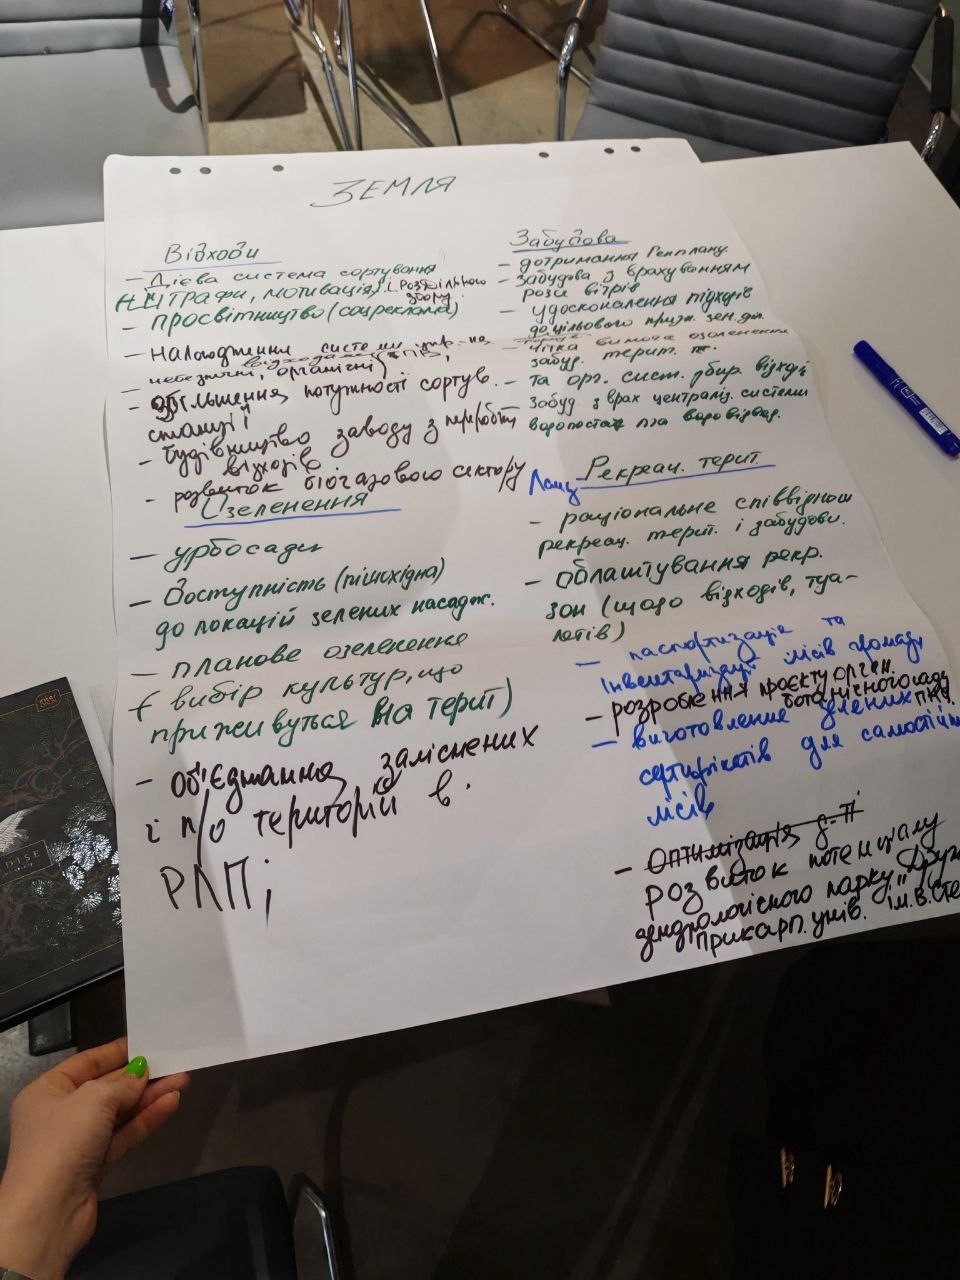 ЗЕМЛЯ
Відходи
- Дієва система сортування
(штрафи, мотивація) і роздільного
збору.
- просвітництво (соцреклама)
- налагодження системи упр-ня
відходами (ТПВ,
небезпечні, органічні)
- збільшення потужності сортув.
станції
- будівництво заводу з переробки
відходів
- розвиток біогазового сектору
Озеленення
- урбосади
- Доступність (пішохідна)
до локацій зелених насадж.
- планове озеленення
(вибір культур, що
приживуться на терит)
- об'єднання заліснених
і п/о територій в
РЛП;
Забудова
- дотримання Генплану.
- Забудова з врахуванням
рози вітрів
- удосконалення підходів
до цільового призн. зем. діл.
- Чітка вимога озеленення
забуд. терит.
- та орг. сист. збир. відході
Забуд з врах централіз. системи
водопостач та водовідвед.
Рекреац. терит.
- раціональне співвіднош
рекреац. терит. і забудови.
- облаштування рекр.
зон (щодо відходів, туа-
летів)
- паспортизація та
інвентаризації лісів громади
- розроблення проєкту орган.
ботанічного саду
ПНУ.
- виготовлення
сертифікатів для самосійних
лісів
- Оптимізація
Розвиток потенціалу
дендрологічного парку „Друж
Прикарп. унів. ім. В. Сте